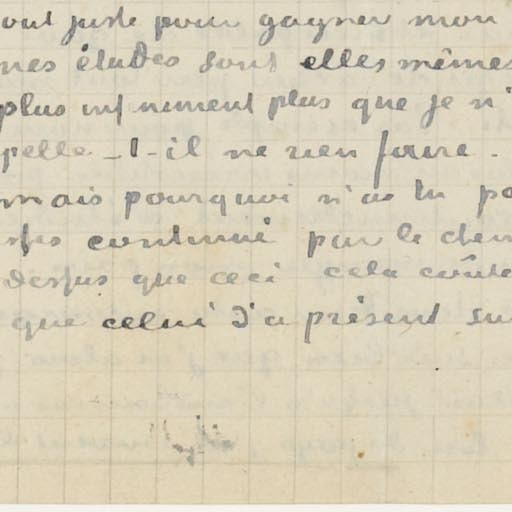 out juste pour gagner mon
mes études sont elles mêmes
plus infiniment plus que je n'
pelle-t-il ne rien faire.
mais pourquoi n'as tu pa
continué par le
dessus que ceci cela coûte
que celui d'a présent su